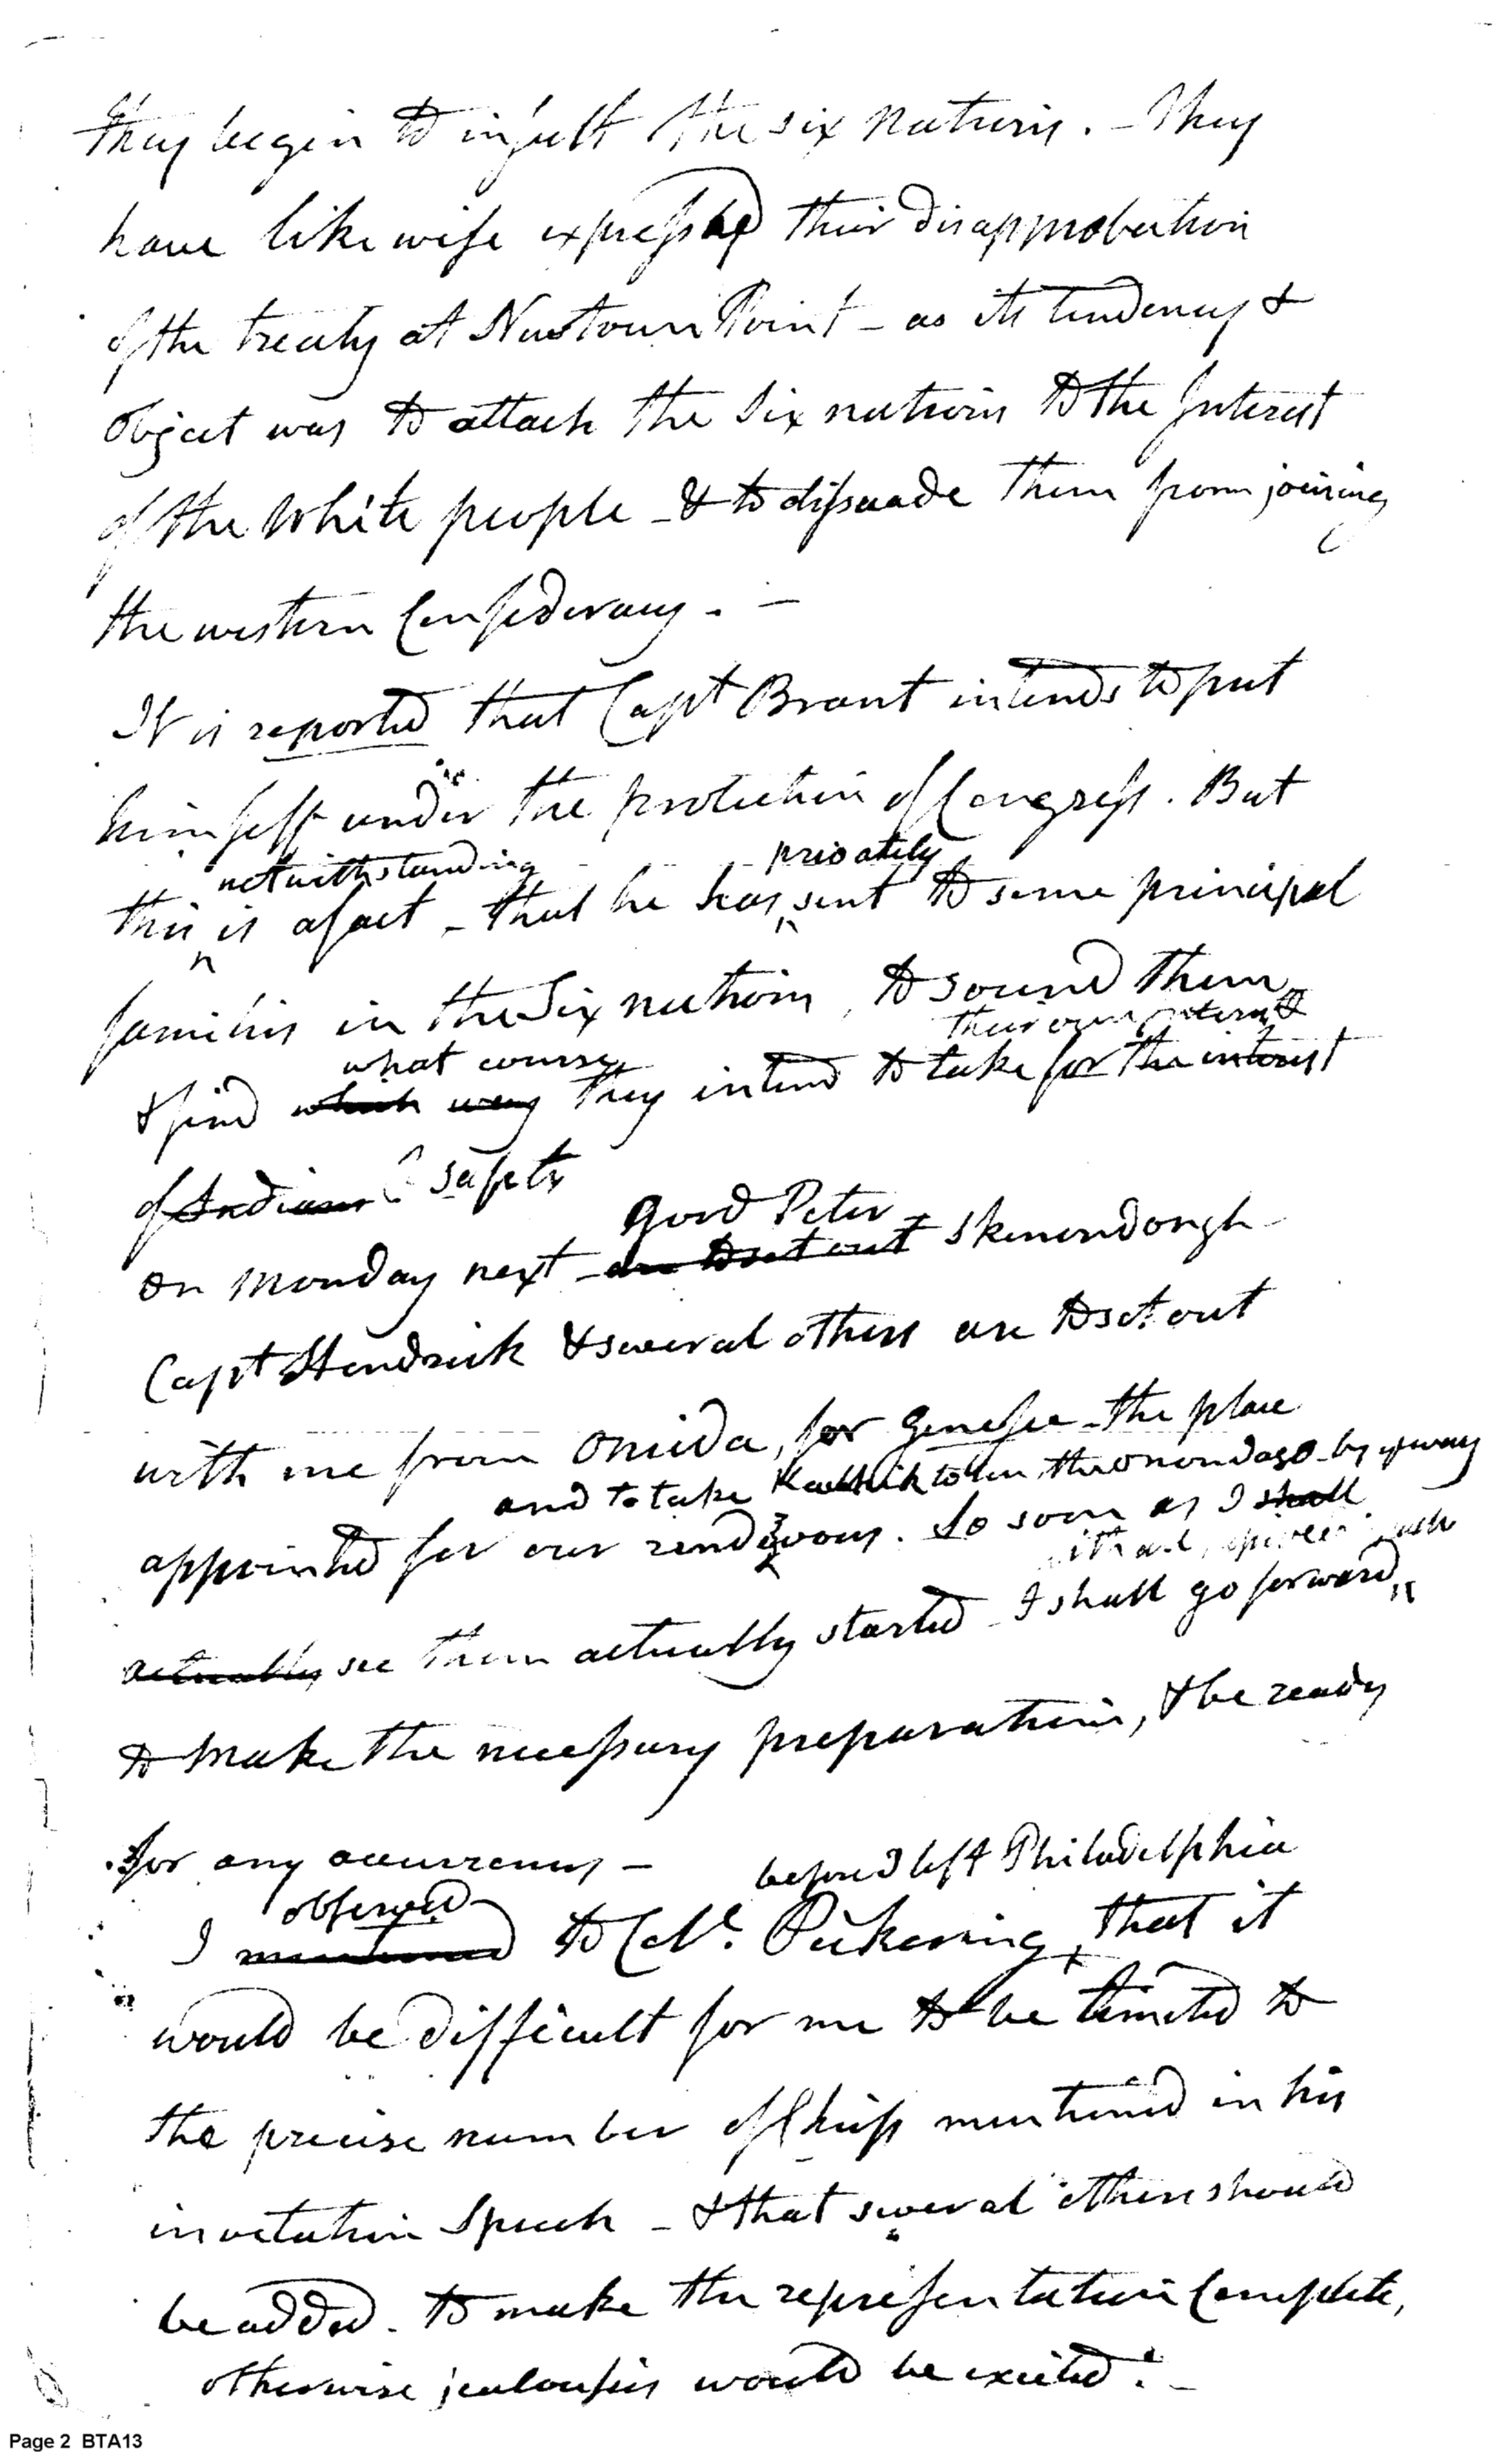 they begin to insult the six Nations. - They
have likewise expressed their disapprobation
of the treaty at Newtown Point - as its tendency &
object was to attach the Six nations to the Interest
of the White people - & to dissuade them from joining
the western Confederacy. -
It is reported that Capt Brant intends to put
himself under the protection of Congress. But
notwithstanding privately
this is a fact - that he has sent to some principal
families in the Six nations, to sound them
their own interest &
what course
& find which way they intend to take for the interest
of Indians safety
Good Peter -
on Monday next - are to set out Skenondongh -
Capt Hendrick & several others are to set out
with me from Oneida, for Genesee - the place
and to take the Onondago - by ye way
appointed for our rendezvous. So soon as I shall
actually see them actually started - I shall go forward
to make the necessary preparations, & be ready
for any occurrences -
before I left Philadelphia
observed
I mentioned to Coll. Pickering, that it
would be difficult for me to be limited to
the precise number of Chiefs mentioned in his
invitation Speech - & that several others should
be added - to make the representation Complete,
otherwise jealousies would be excited. -
Page 2 BTA13